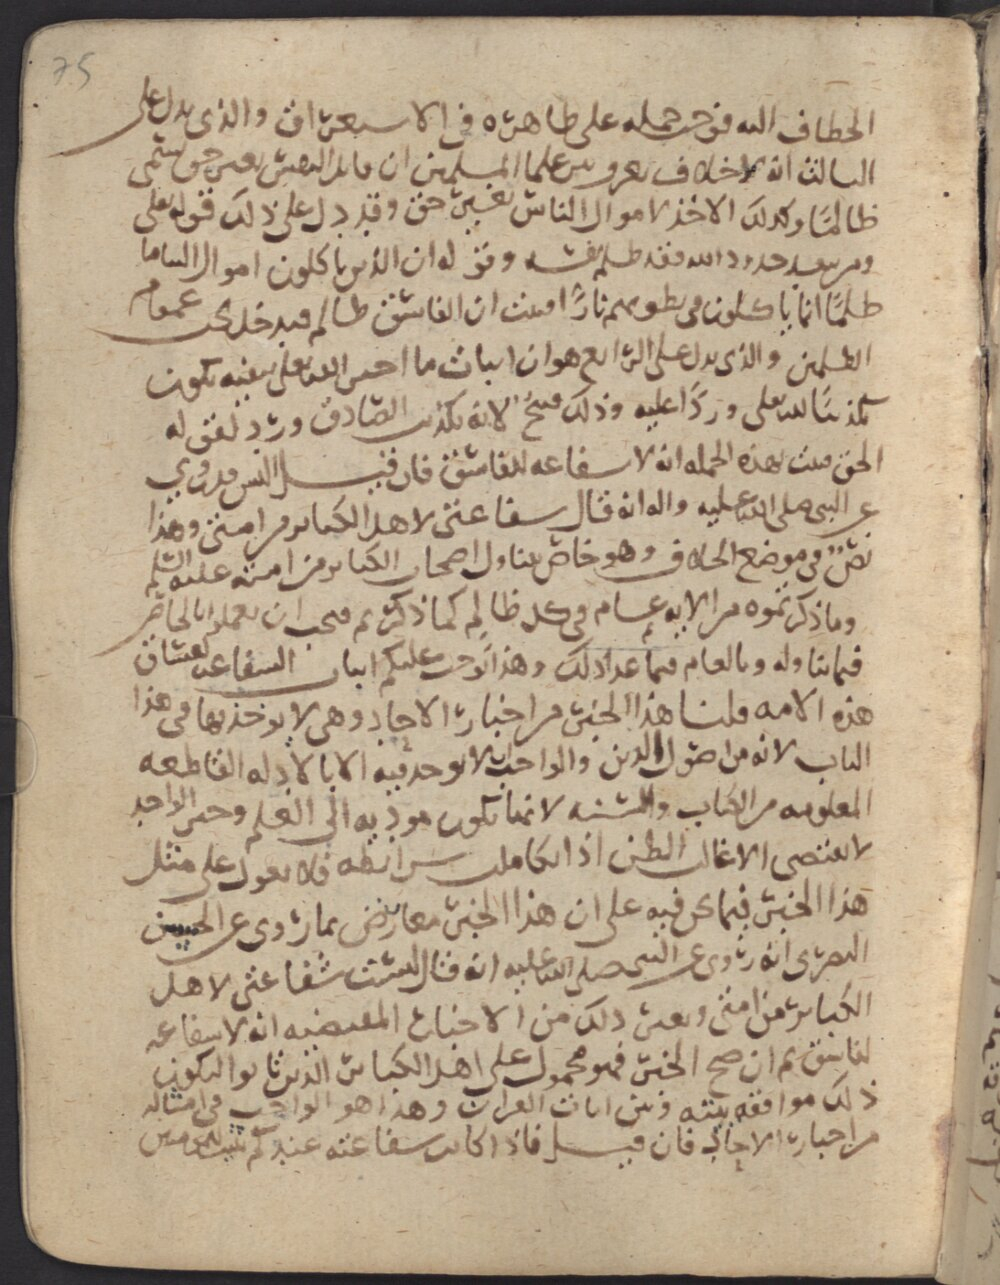 75
الخطاف الله فوجب حمله على ظاهره في الاستغراق والذي يدل على
الثالث انه لا خلاف نعرفه بين علما المسلمين ان قاتل النفس بغير حق يسمى
ظالمًا وكذلك الاخذ لاموال الناس بغير حق وقد دل على ذلك قوله تعلى
ومن يتعد حدود الله فقد ظلم نفسه وقوله ان الذين ياكلون اموال اليتاما
ظلمًا انما ياكلون في بطونهم نارًا فثبت ان الفاسق ظالم فيدخل تحت عموم
الظلمين والذي يدل على الرابع هو ان اثبات ما اخبر الله تعلى بنفيه يكون
تكذيبًا لله تعلى وردًا عليه وذلك قبيح لانه تكذيب الصادق ورد لقوله
الحق فثبت بهذه الجمله انه لا شفاعه للفاسق فان قيل اليس قد روي
عن النبي صلى الله عليه واله انه قال شفاعتي لاهل الكبائر من امتي وهذا
نصٌ في موضع الخلاف وهو خاص يتناول اصحاب الكبائر من امته عليه السلم
وما ذكرتموه من الايه عام في كل ظالم كما ذكرتم فيجب ان يعمل بالخاص
فيما تناوله وبالعام فيما عدا ذلك وهذا يوجب عليكم اثبات الشفاعه لفساق
هذه الامه قلنا هذا الخبر من اخبار الاحاد وهي لا يوخذ بها في هذا
الباب لانه من اصول الدين والواجب الا يوخذ فيه الا بالادله القاطعه
المعلومه من الكتاب والسنه لانها تكون موديه الى العلم وخبر الواحد
لا يقتضي الا غالب الظن اذا تكاملت شرائطه فلا يعول على مثل
هذا الخبر فيما نحن فيه على ان هذا الخبر معارض بما روى عن الحسن
البصري انه روى عن النبي صلى الله عليه انه قال ليست شفاعتي لاهل
الكبائر من امتي وبغير ذلك من الاخبار المقتضيه انه لا شفاعه
لفاسق ثم ان صح الخبر فهو محمول على اهل الكبائر الذين تابوا ليكون
ذلك موافقه بينه وبين ايات القران وهذا هو الواجب في امثاله
من اخبار الاحاد فان قيل فاذا كانت شفاعته عندكم تثبت للمومنين